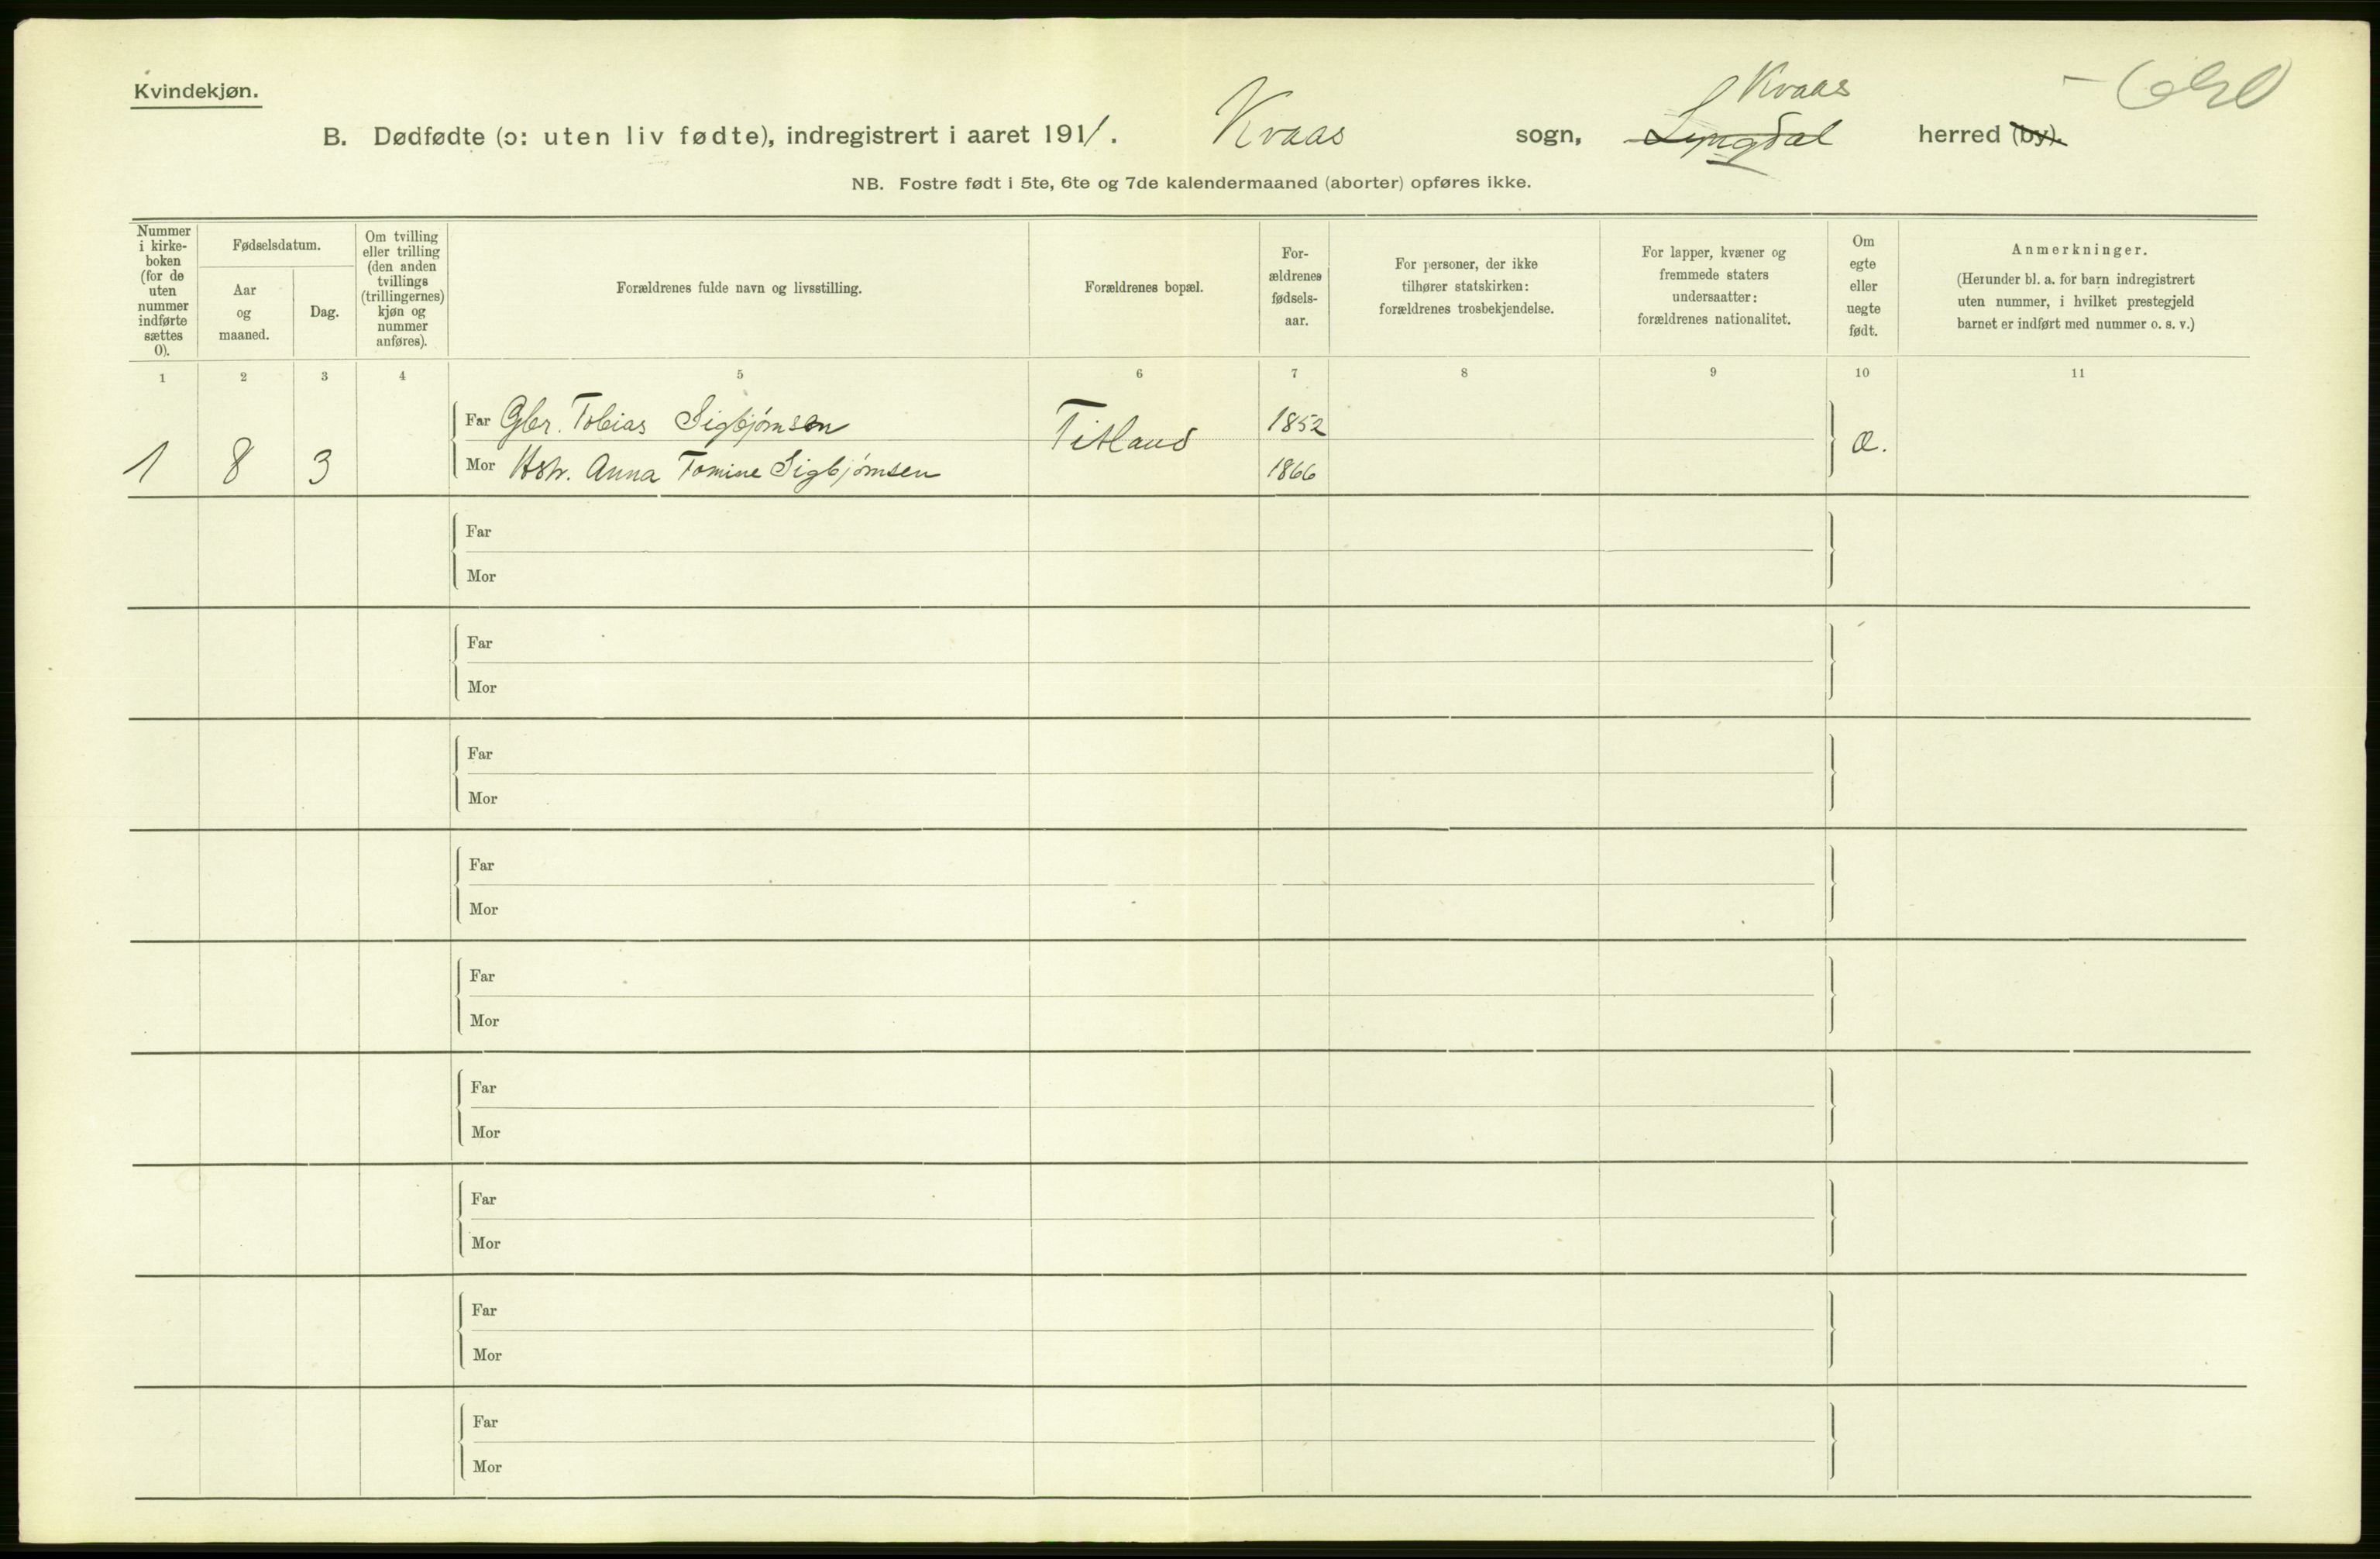 Kvindekjøn.
Kvaas
B. Dødfødte (ɔ: uten liv fødte), indregistrert i aaret 1911. Kvaas sogn, Lyngdal herred (by).
NB. Fostre født i 5te, 6te og 7de kalendermaaned (aborter) opføres ikke.
Nummer
i kirke-
boken
(for de
uten
nummer
indførte
sættes
0).
Fødselsdatum.
Aar
og
maaned.
Dag.
Om tvilling
eller trilling
(den anden
tvillings
(trillingernes)
kjøn og
nummer
anføres).
Forældrenes fulde navn og livsstilling.
Forældrenes bopæl.
For-
ældrenes
fødsels-
aar.
For personer, der ikke
tilhører statskirken:
forældrenes trosbekjendelse.
For lapper, kvæner og
fremmede staters
undersaatter:
forældrenes nationalitet.
Om
egte
eller
uegte
født.
Anmerkninger.
(Herunder bl. a. for barn indregistrert
uten nummer, i hvilket prestegjeld
barnet er indført med nummer o. s. v.)
1 2 3 4 5 6 7 8 9 10 11
Far Gbr. Tobias Sigbjørnsen Titland 1852
1 8 3 Mor Hstr. Anna Tomine Sigbjørnsen 1866 æ.
Far
Mor
Far
Mor
Far
Mor
Far
Mor
Far
Mor
Far
Mor
Far
Mor
Far
Mor
Far
Mor